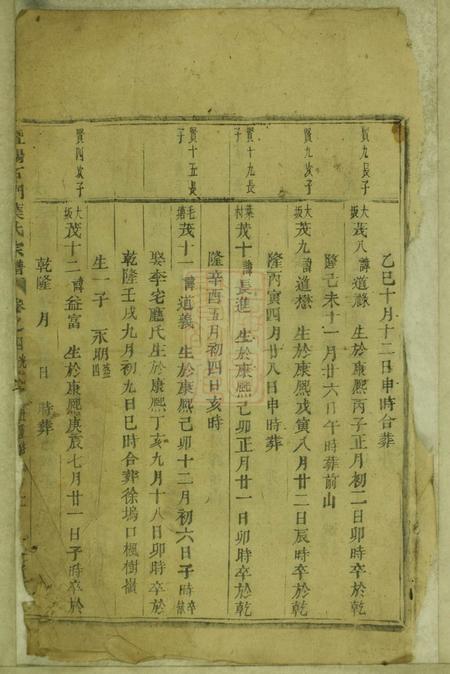 乙巳十月十二日申時合葬
賢九長子
大坂茂八諱道祿 生於康熙丙子正月初二日卯時卒於乾
隆己未十一月廿六日午時葬前山
賢九次子
大坂茂九諱道懋 生於康熙戊寅八月廿二日辰時卒於乾
隆丙寅四月廿八日申時葬
賢十九長子
葉村茂十諱長進 生於康熙己卯正月廿一日卯時卒於乾
隆辛酉五月初四日亥時
賢十五長子
毛塘茂十一諱道義 生於康熙己卯十二月初六日子時卒
娶李宅應氏生於康熙丁亥九月十八日卯時卒於
乾隆壬戌九月初九日巳時合葬徐塢口楓樹嶺
生一子 永明
賢四次子
大坂茂十二諱益富 生於康熙庚辰七月廿一日子時卒於
乾隆 月 日 時葬
石門葉氏宗譜 卷之四